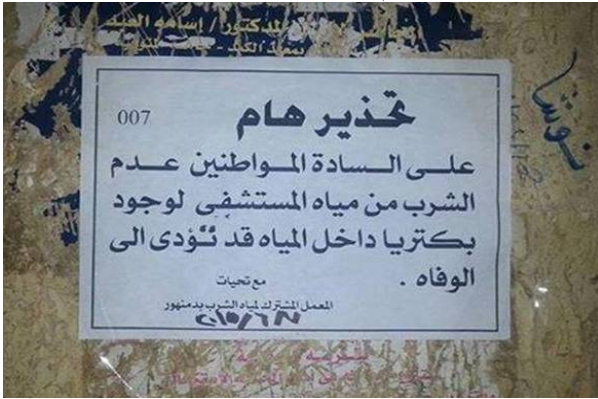 للدكتور / إسامه العبد
007
تحذير هام
على السادة المواطنين عدم
الشرب من مياه المستشفى لوجود
بكتريا داخل المياه قد تؤدى الى
الوفاه .
مع تحيات
المعمل المشترك لمياه الشرب بدمنهور